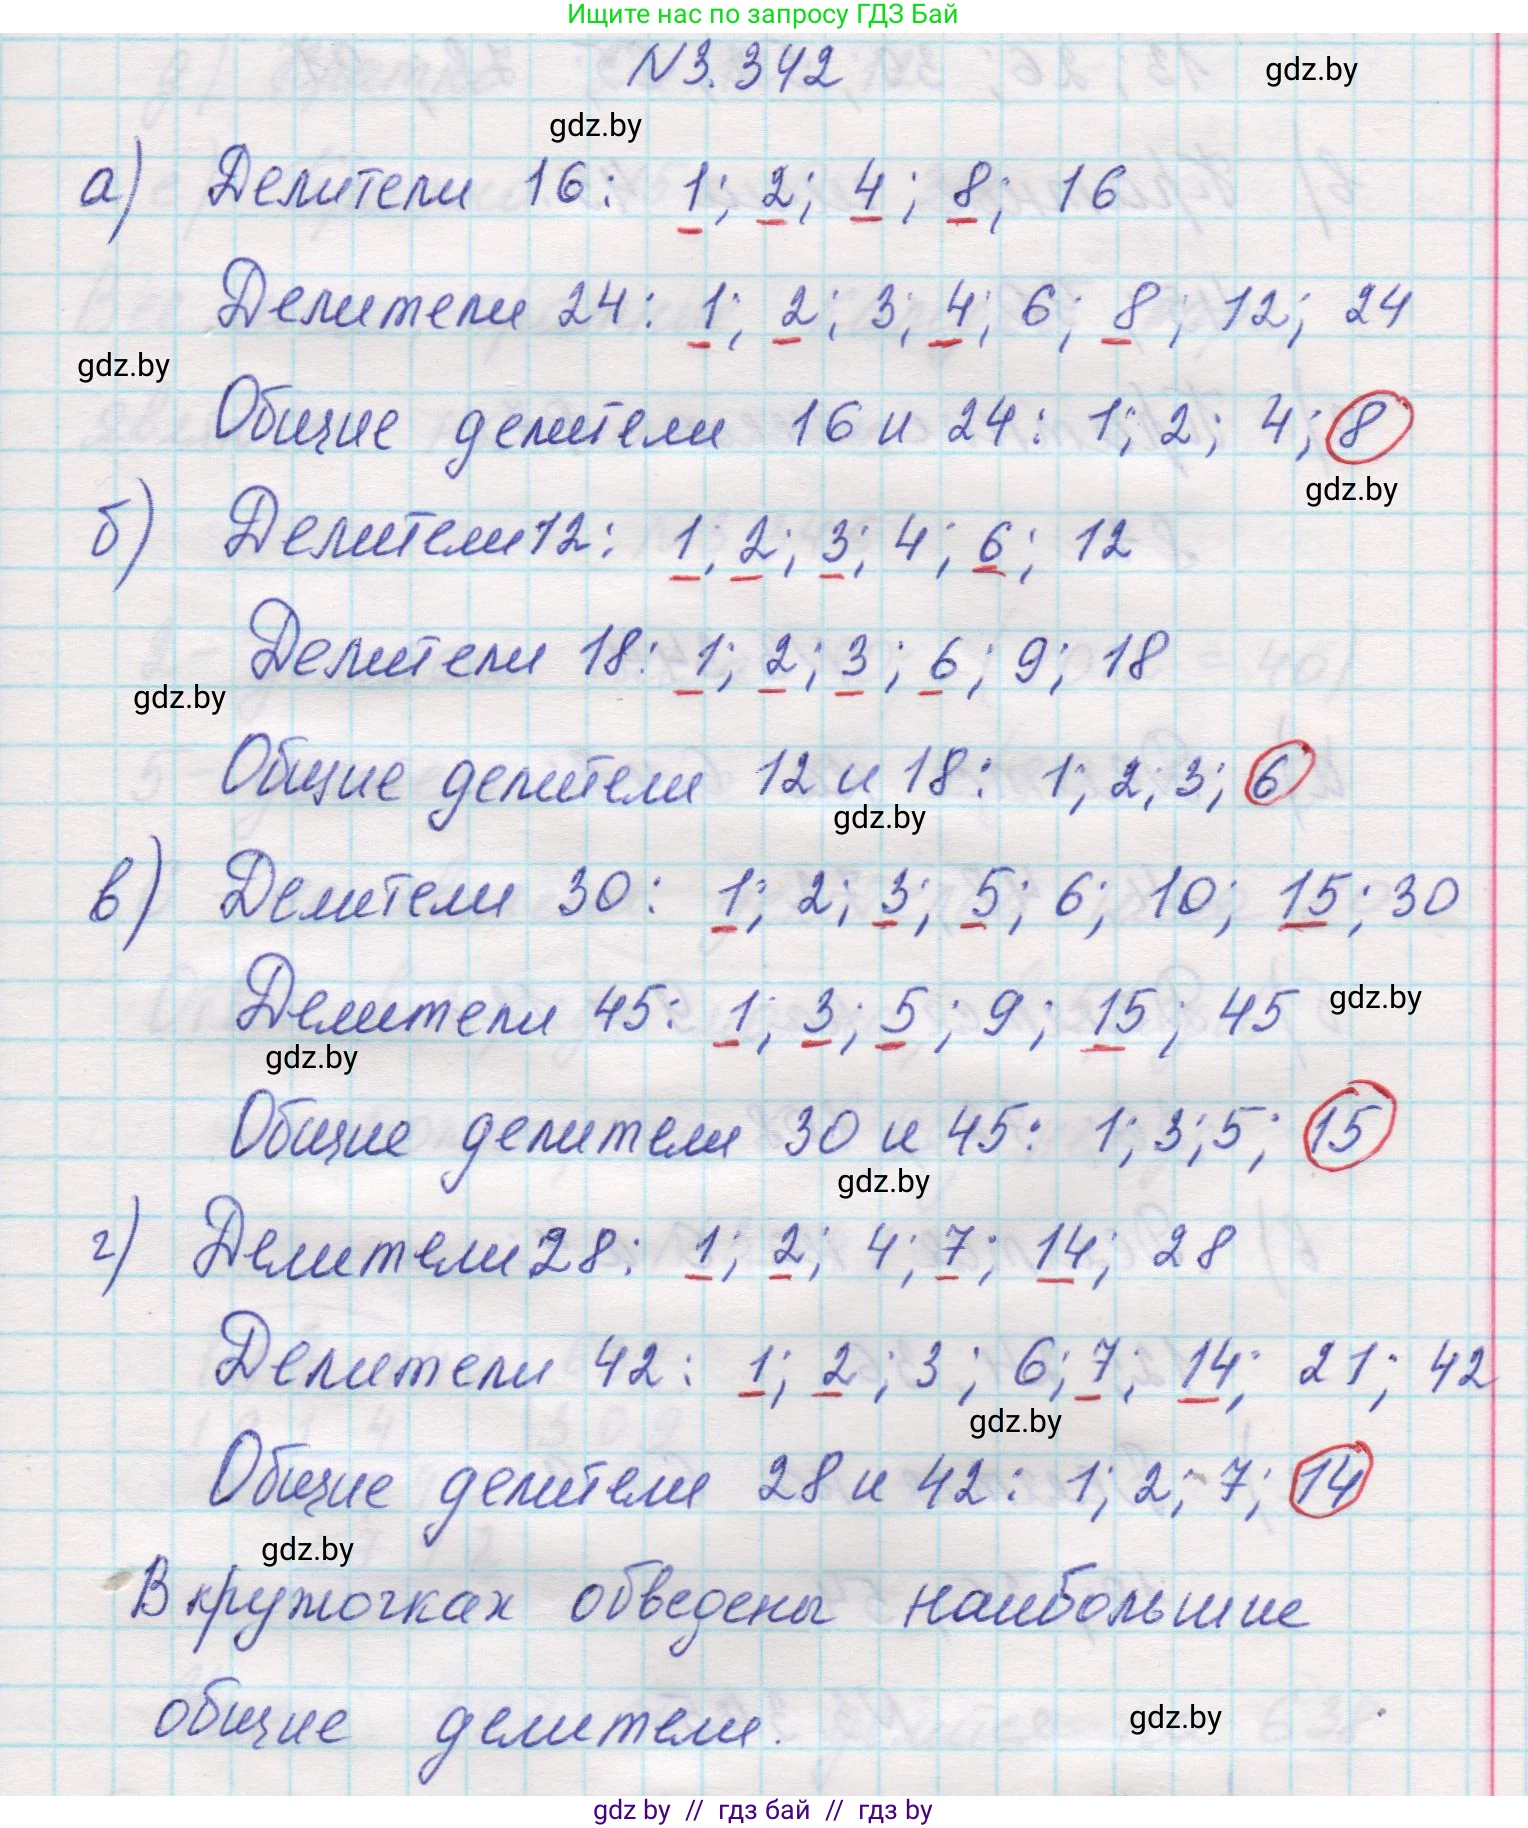 Ищите нас по запросу ГДЗ Бай
N3.342
gdz.by
gdz.by
а) Делители 16: 1; 2; 4; 8; 16
Делители 24: 1; 2; 3; 4; 6; 8; 12; 24
gdz.by
Общие делители 16 и 24: 1; 2; 4; 8
gdz.by
б) Делители 12: 1; 2; 3; 4; 6; 12
Делители 18: 1; 2; 3; 6; 9; 18
gdz.by
Общие делители 12 и 18: 1; 2; 3; 6
gdz.by
в) Делители 30: 1; 2; 3; 5; 6; 10; 15; 30
Делители 45: 1; 3; 5; 9; 15; 45
gdz.by
gdz.by
Общие делители 30 и 45: 1; 3; 5; 15
gdz.by
г) Делители 28: 1; 2; 4; 7; 14; 28
Делители 42: 1; 2; 3; 6; 7; 14; 21; 42
gdz.by
Общие делители 28 и 42: 1; 2; 7; 14
gdz.by
В кружочках обведены наибольшие
общие делители.
gdz.by
gdz by // гдз бай // гдз by